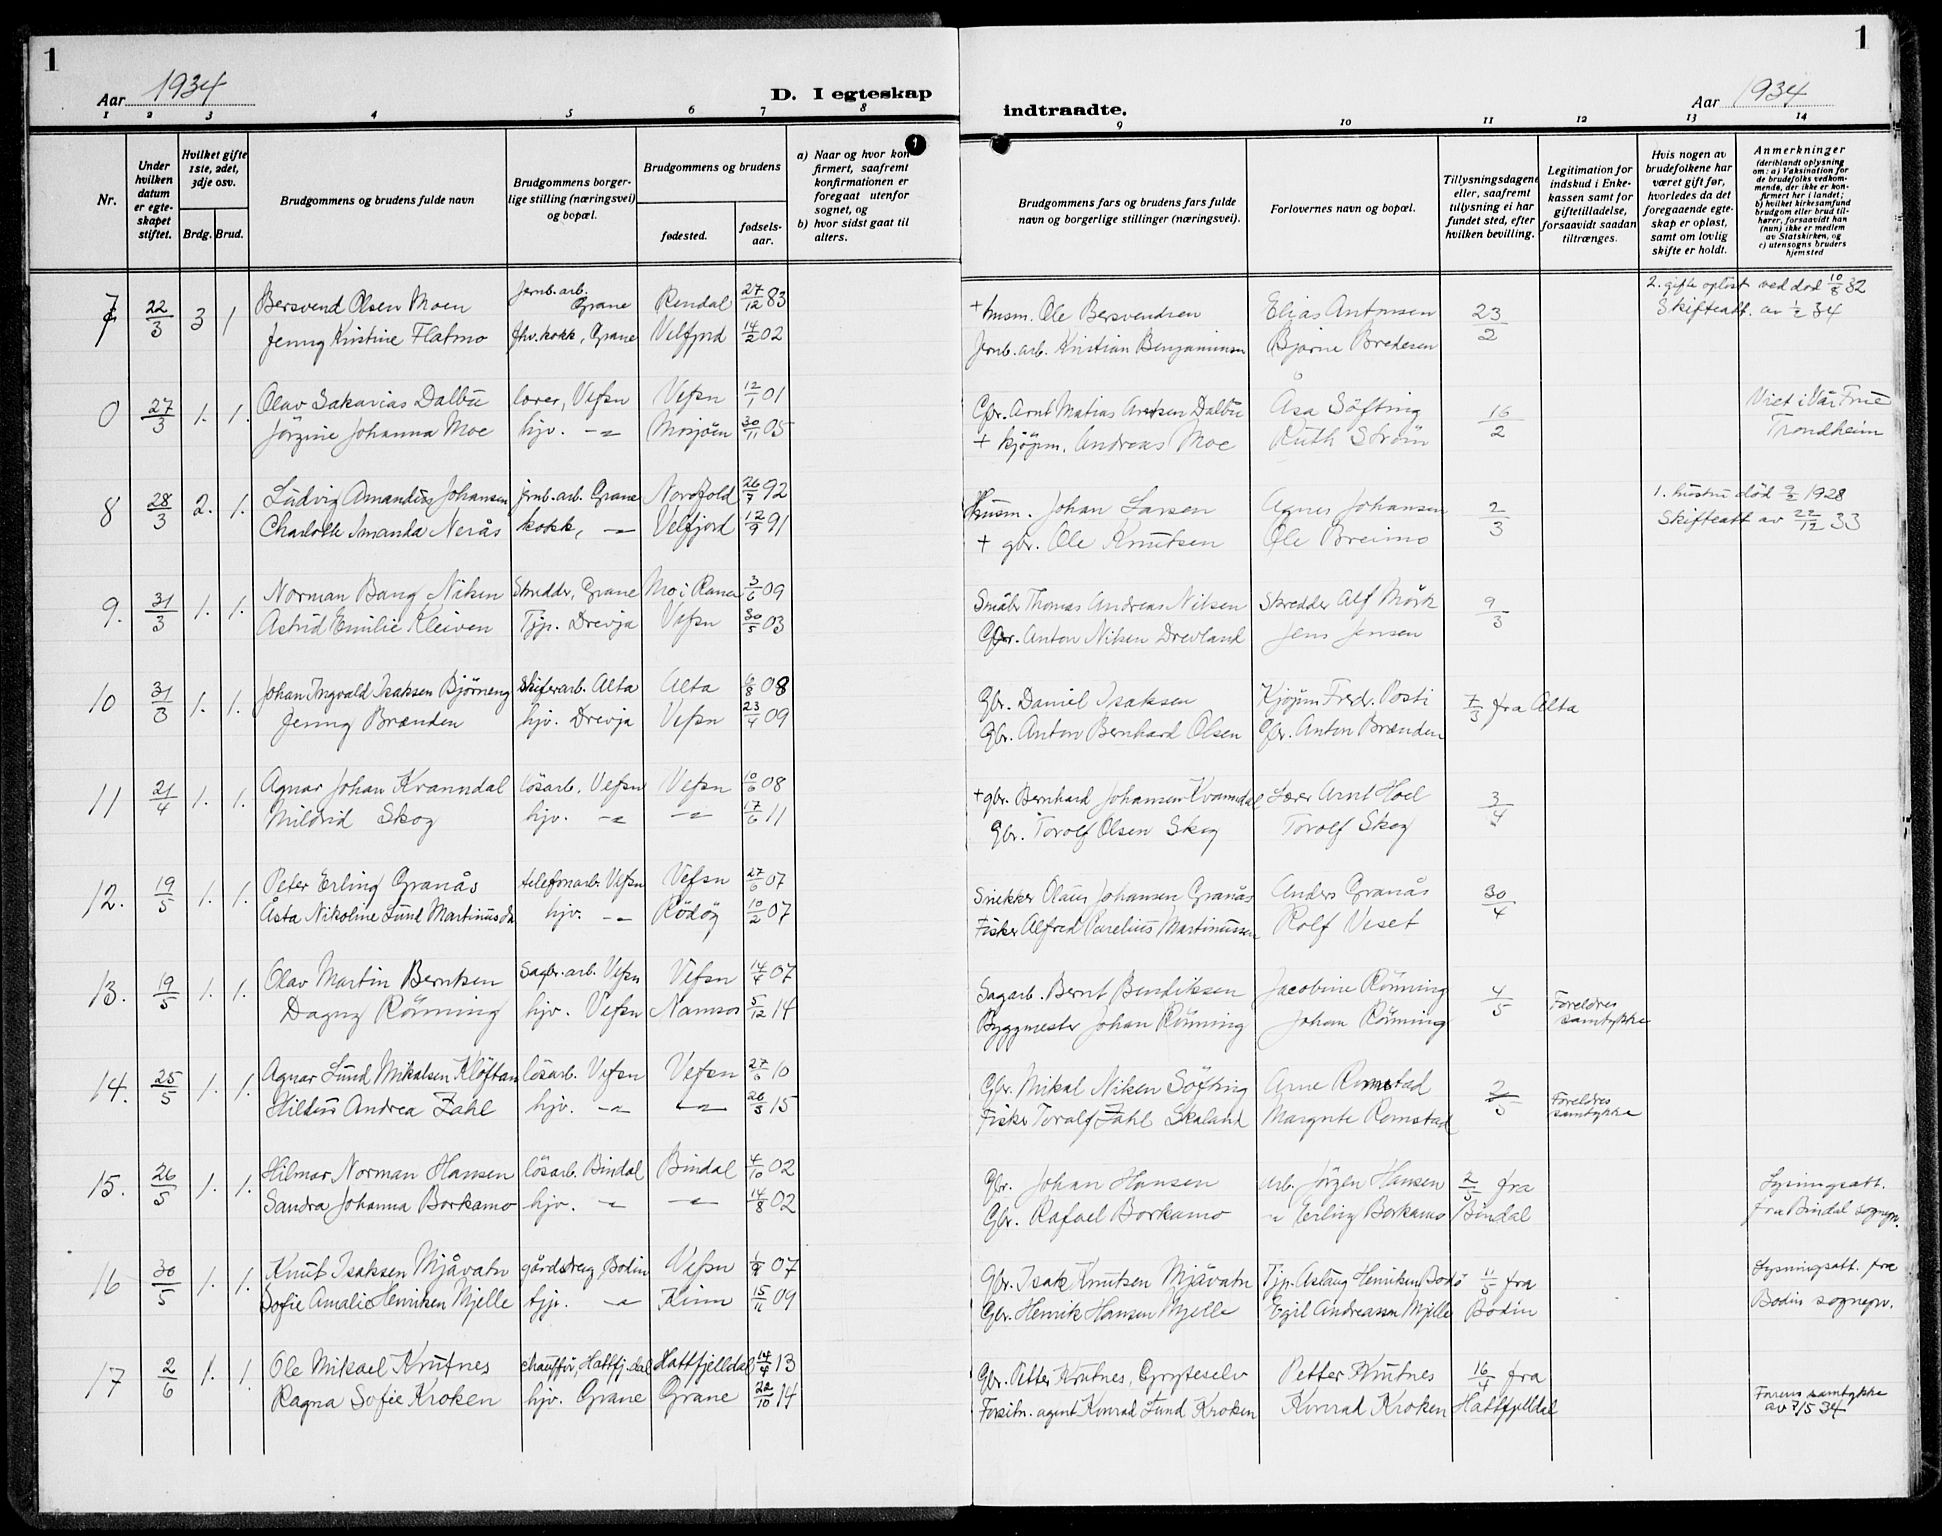 1
Aar 1934
D. I egteskap
indtraadte.
Aar 1934
1
1 2 3 4 5 6 7 8 9 10 11 12 13 14
Nr.
Under hvilken datum er egte-skapet stiftet.
Hvilket gifte 1ste, 2det, 3dje osv.
Brdg. Brud.
Brudgommens og brudens fulde navn
Brudgommens borger-lige stilling (næringsvei) og bopæl.
Brudgommens og brudens
fødested.
fødsels-aar.
a) Naar og hvor kon-firmert, saafremt konfirmationen er foregaat utenfor sognet, og
b) hvor sidst gaat til alters.
Brudgommens fars og brudens fars fulde navn og borgerlige stillinger (næringsvei).
Forlovernes navn og bopæl.
Tillysningsdagene eller, saafremt tillysning ei har fundet sted, efter hvilken bevilling.
Legitimation for indskud i Enke-kassen samt for giftetilladelse, forsaavidt saadan tiltrænges.
Hvis nogen av brudefolkene har været gift før, hvorledes da det foregaaende egte-skap er opløst, samt om lovlig skifte er holdt.
Anmerkninger (deriblandt oplysning om: a) Vaksination for de brudefolks vedkom-mende, der ikke er kon-firmert her i landet; b) hvilket kirkesamfund brudgom eller brud til-hører, forsaavidt han (hun) ikke er medlem av Statskirken, og c) utensogns bruders hjemsted
7 22/3 3 1 Bersvend Olsen Moen Jernb. arb. Grane Rendal 27/12 83 + husm. Ole Bersvendsen Elias Antonsen 23/2 2. gifte opløst ved død 10/8 32
Jenny Kristine Flatmo fhv. kokk, Grane Velfjord 14/2 02 Jernb. arb. Kristian Benjaminsen Bjarne Bredesen Skifteatt. av 1/2 34
0 27/3 1. 1. Olav Sakarias Dalbu lærer, Vefsn Vefsn 12/1 01 Gbr. Arnt Matias Arntsen Dalbu Åsa Söfting 16/2 Viet i Vår Frue
Jörgine Johanna Moe hjv. -"- Mosjøen 30/11 05 + kjøpm. Andreas Moe Ruth Ström Trondheim
8 28/3 2. 1. Ludvig Amandus Johansen jernb. arb. Grane Nordfold 26/7 92 Husm. Johan Larsen Agnes Johansen 2/3 1. hustru død 9/2 1928
Charlotte Amanda Nerås kokk, -"- Velfjord 12/9 91 + gbr. Ole Knutsen Ole Breimo Skifteatt av 22/12 33
9. 31/3 1. 1. Norman Bang Nilsen Skredder, Grane Mo i Rana 3/6 09 Småbr Thomas Andreas Nilsen Skredder Alf Mörk 9/3
Astrid Emilie Kleiven Tjp. Drevja Vefsn 30/5 03 Gbr. Anton Nilsen Drevland Jens Jensen
10 31/3 1. 1. Johan Ingvald Isaksen Bjørneng Skiferarb. Alta Alta 6/8 08 Gbr. Daniel Isaksen Kjøpm Fred. Posti 7/3 fra Alta
Jenny Brænden hjv. Drevja Vefsn 23/4 09 Gbr. Anton Bernhard Olsen Gbr. Anton Brænden
11 21/4 1. 1. Agnar Johan Kvanndal lösarb. Vefsn Vefsn 10/6 08 + gbr. Bernhard Johansen Kvanndal Lærer Arnt Hoel 3/4
Mildrid Skog hjv. -"- -"- 17/6 11 Gbr. Torolf Olsen Skog Torolf Skog
12. 19/5 1. 1. Peter Erling Granås telefonarb. Vefsn Vefsn 27/6 07 Snekker Olaus Johansen Granås Anders Granås 30/4
Åsta Nikoline Lund Martinussen hjv. -"- Rödöy 10/2 07 Fisker Alfred Parelius Martinussen Rolf Veset
13. 19/5 1. 1. Olav Martin Berntsen Sagbr. arb. Vefsn Vefsn 14/4 07 Sagarb. Bernt Bendiksen Jacobine Rönning 4/5 Foreldres
Dagny Rönning hjv. Vefsn Namsos 5/12 14 Byggmester Johan Rönning Johan Rönning samtykke
14. 25/5 1. 1. Agnar Lund Mikalsen Klöftan lösarb. Vefsn Vefsn 27/6 10 Gbr. Mikal Nilsen Söfting Arne Romstad 2/5 Foreldres
Hildus Andrea Zahl hjv. -"- -"- 26/5 15 Fisker Toralf Zahl Skaland Margrete Romstad samtykke
15. 26/5 1. 1. Hilmar Norman Hansen lösarb. Bindal Bindal 4/10 02 Gbr. Johan Hansen arb. Jörgen Hansen 2/5 fra Lysningsatt.
Sandra Johanna Borkamo hjv. -"- -"- 14/8 02 Gbr. Rafael Borkamo -"- Erling Borkamo Bindal fra Bindal sognepr.
16 30/5 1. 1. Knut Isaksen Mjåvatn gårdsdreng, Bodin Vefsn 1/9 07 Gbr. Isak Knutsen Mjåvatn Tjp. Aslaug Henriksen Bodø 11/5 fra Lysningsatt. fra
Sofie Amalie Henriksen Mjelle tjp. -"- Kinn 15/11 09 Gbr. Henrik Hansen Mjelle Egil Andreassen Mjelle Bodin Bodin sognepr.
17 2/6 1. 1. Ole Mikael Krutnes chauffør, Hattfj.dal Hattfjelldal 14/4 13 Gbr. Petter Krutnes, Gryteselv Petter Krutnes 16/4 fra
Ragna Sofie Kroken hjv. Grane Grane 22/10 14 Forsikr. agent Konrad Lund Kroken Konrad Kroken Hattfjelldal Farens samtykke
av 7/5 34